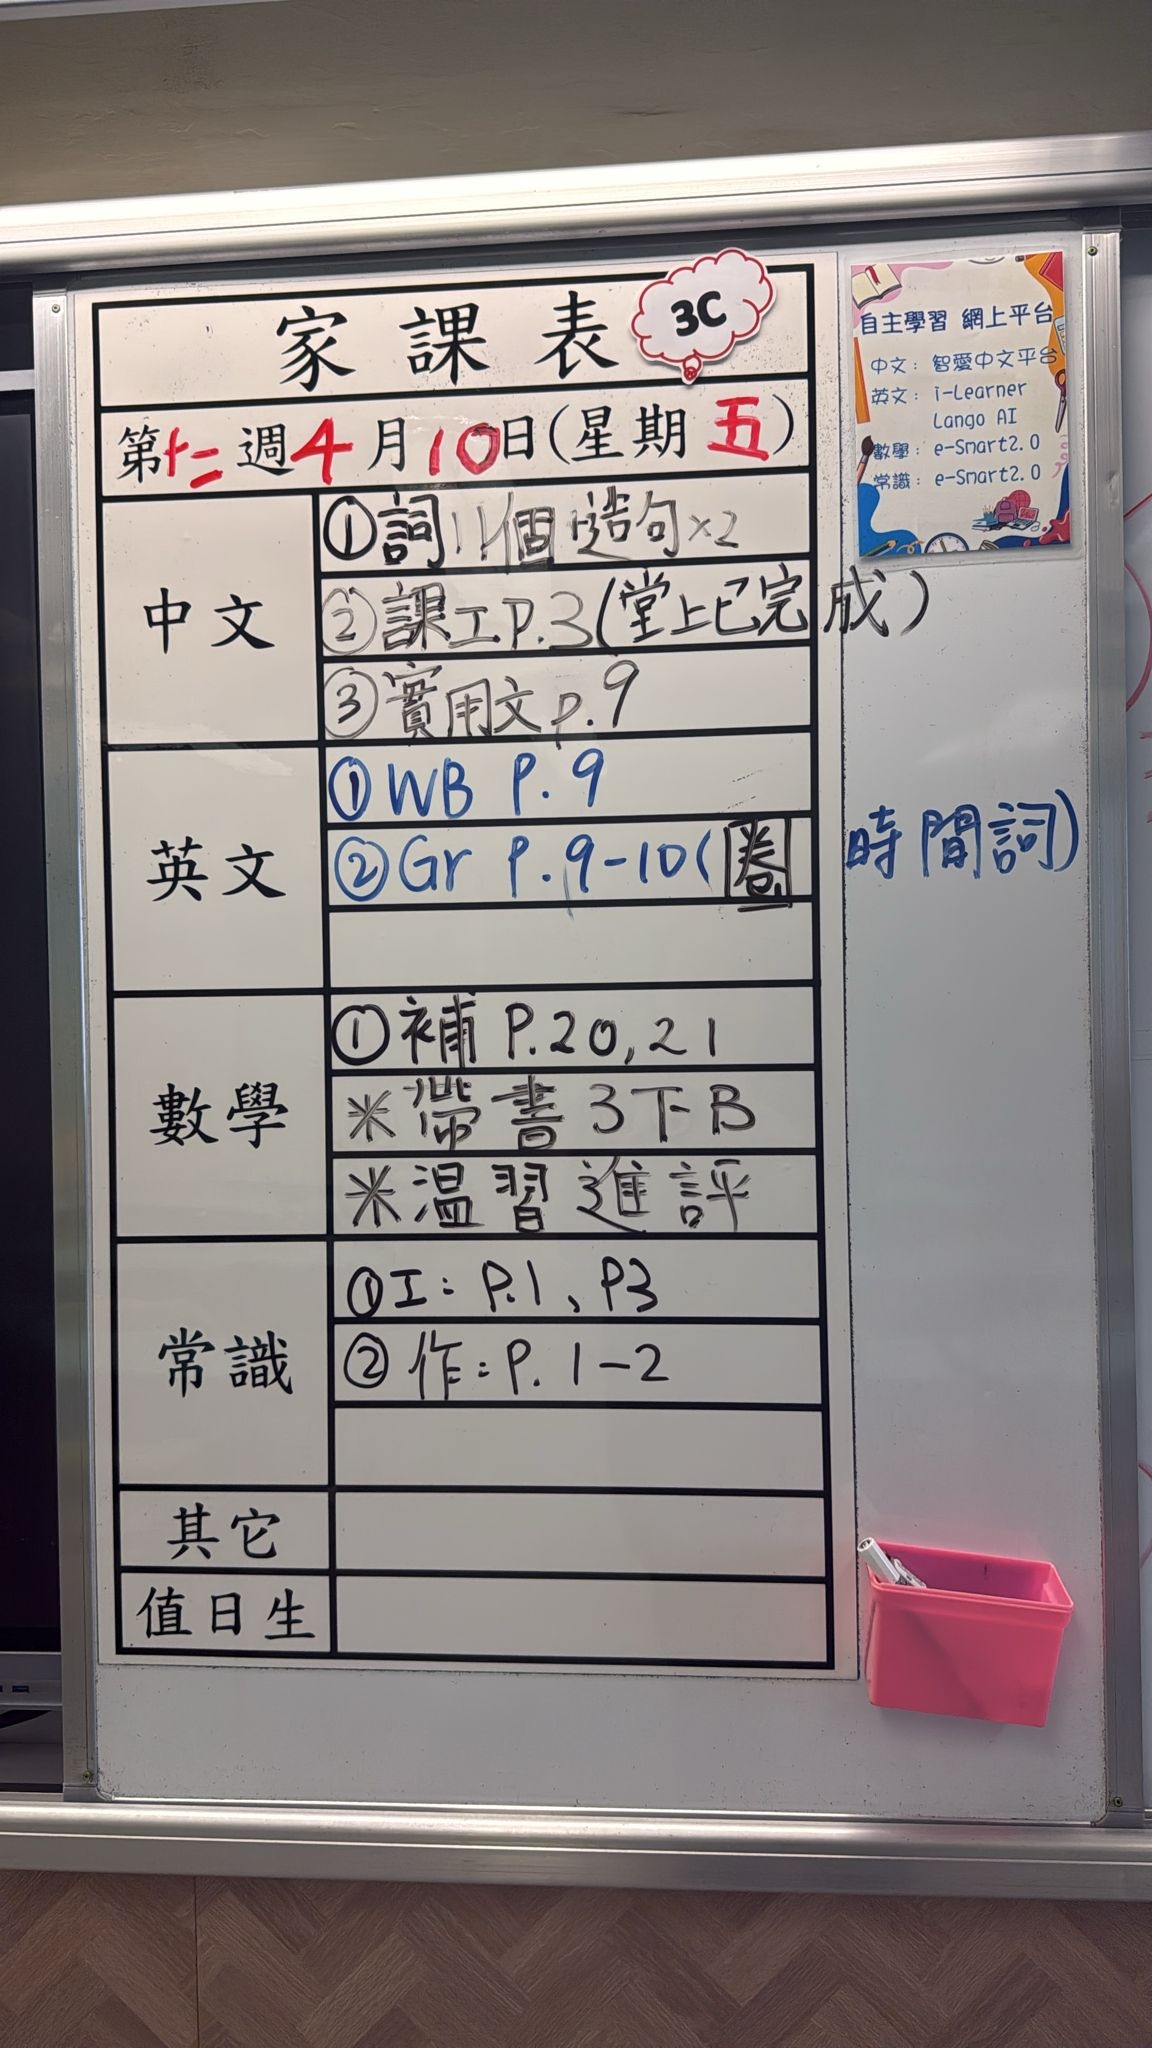 家課表
3C
第十二週4月10日(星期五)
中文
①詞11個 造句×2
②課工P.3(堂上已完成)
③實用文p.9
英文
①WB P.9
②Gr P.9-10(圈時間詞)
數學
①補 P.20,21
※帶書3下B
※温習進評
常識
①工:P.1、P3
②作:P.1-2
其它
值日生
自主學習 網上平台
中文:智愛中文平台
英文:i-Learner
Lango AI
數學:e-Smart2.0
常識:e-Smart2.0